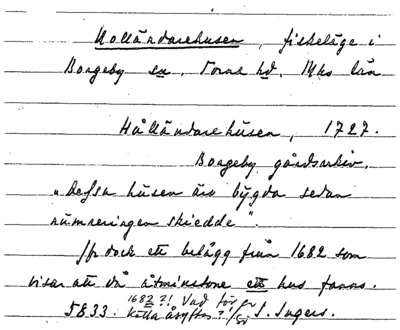 Holländarehusen, fiskeläge i
Borgeby sn, Torna hd, Mhs län
Hålländarehusen, 1727.
Borgeby gårdsarkiv.
"Dessa húsen äro býgda sedan
númreringen skiedde".
Jfr dock ett belägg från 1682 som
visar att då åtminstone ett hus fanns.
1682?! Vad för
5833. källa åsyftas?! J. Ingers.